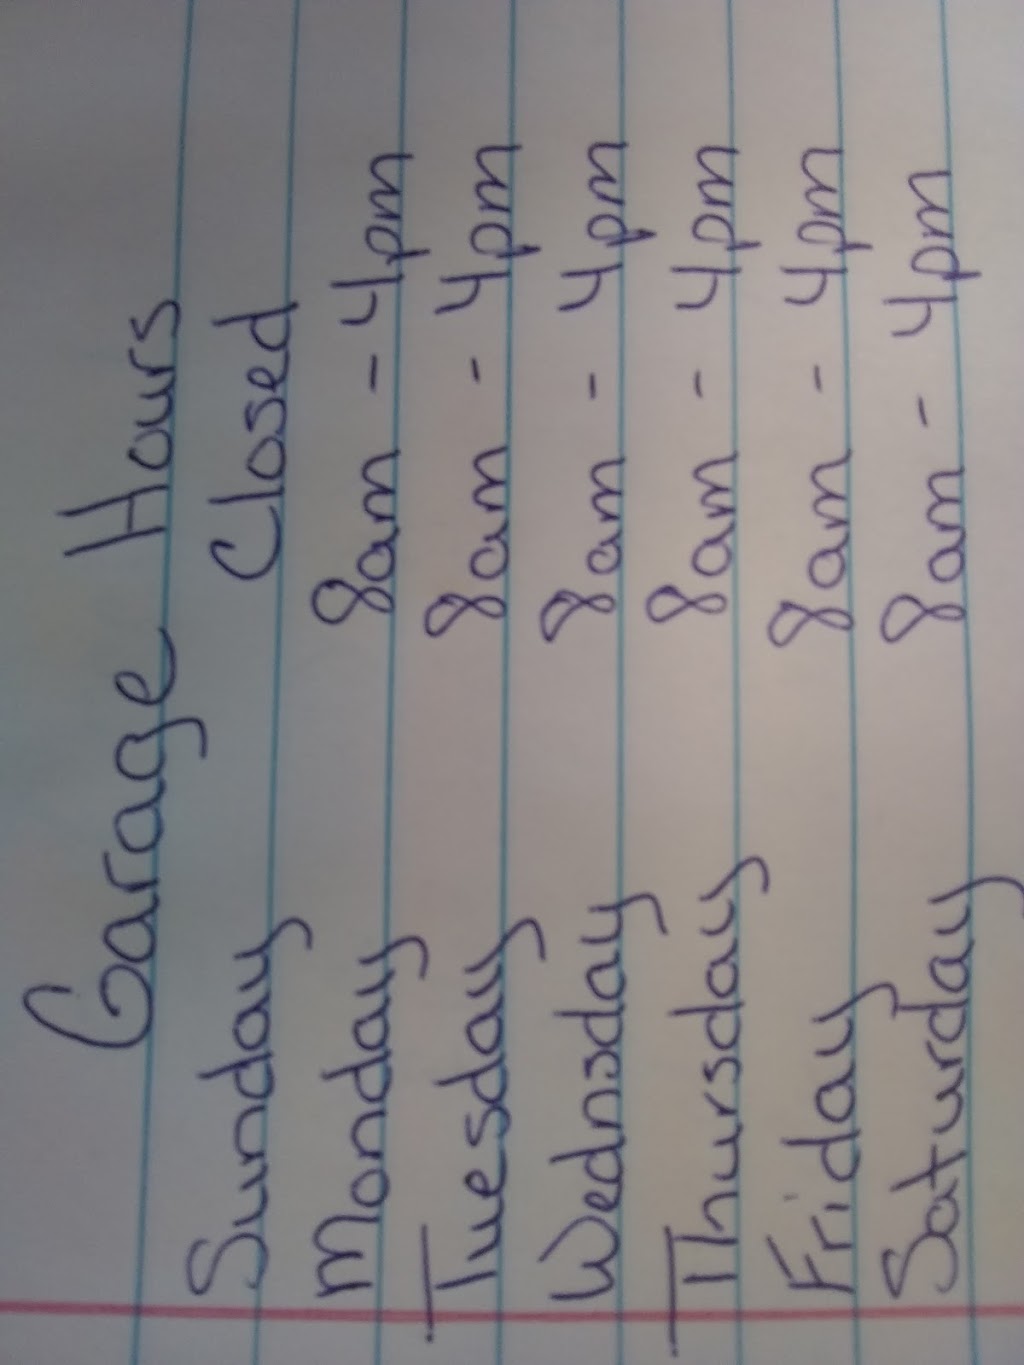 Garage Hours
Sunday Closed
Monday 8am - 4pm
Tuesday 8am - 4pm
Wednsday 8am - 4pm
Thursday 8am - 4pm
Friday 8am - 4pm
Saturday 8am - 4pm